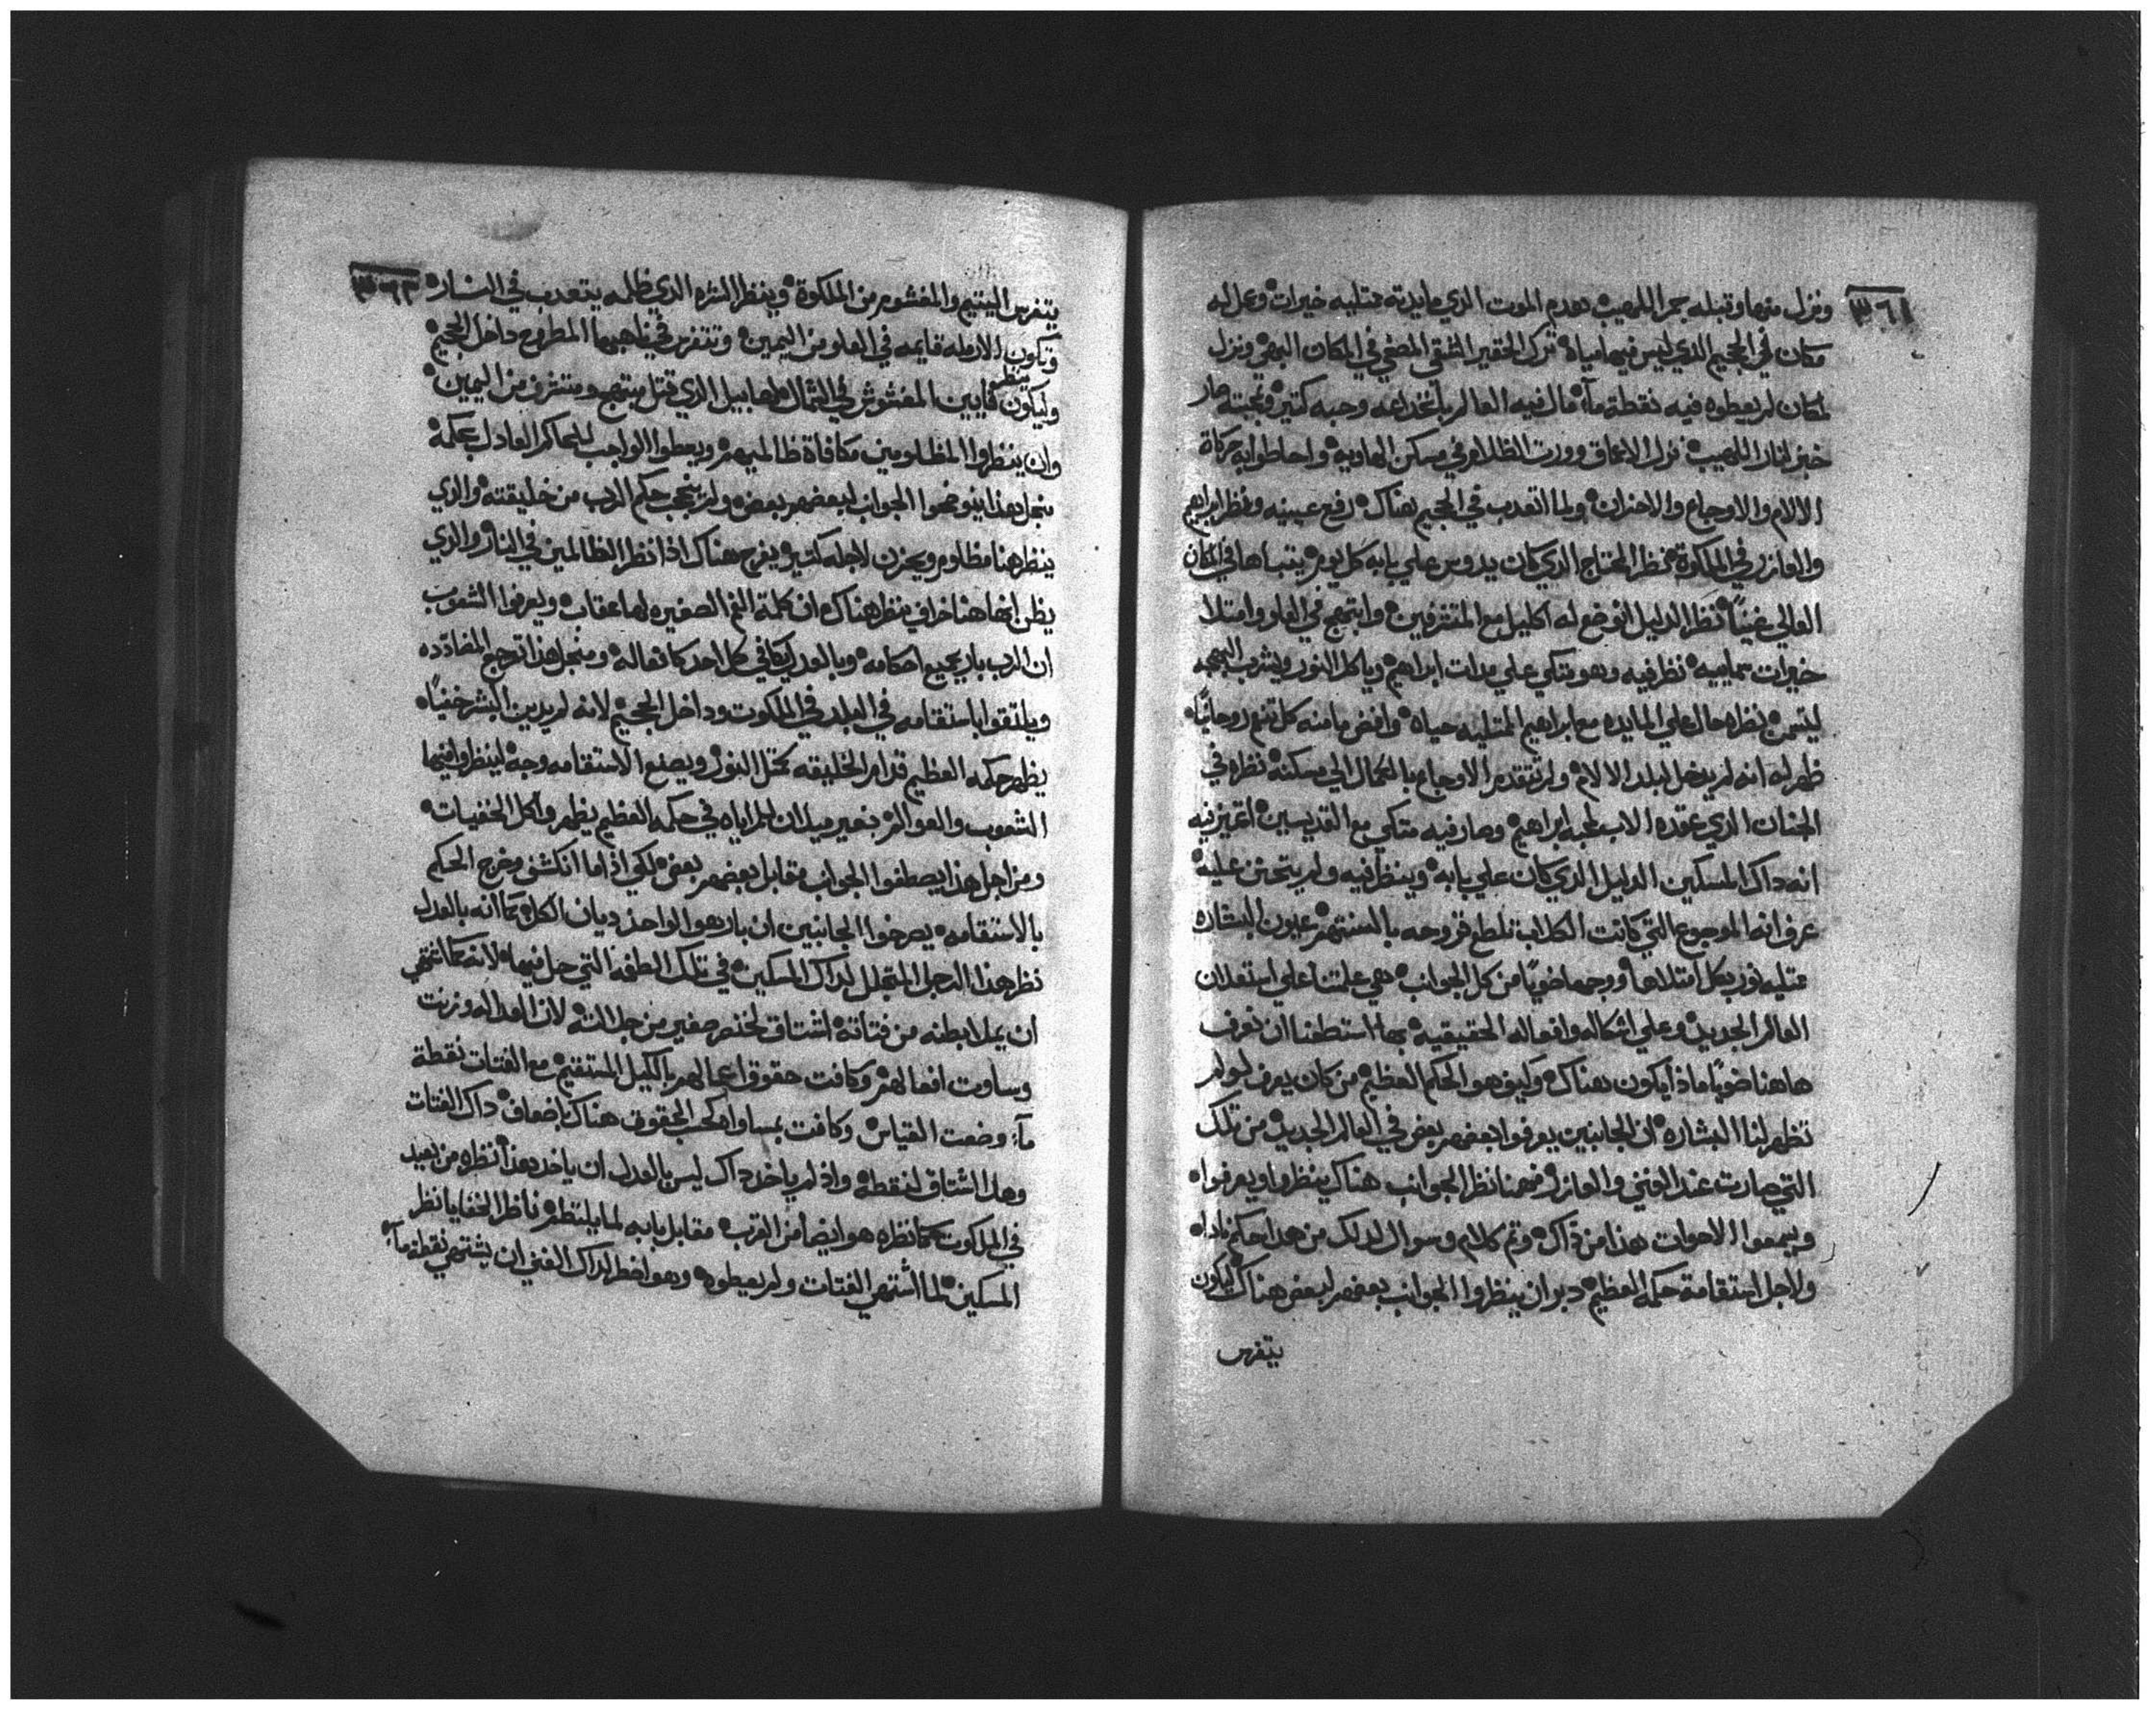 ٣٦١
ونزل منها وقبله جمر اللهيب هدم الموت الذي مايدته ممتليه خيرات وعمل له
مكان في الجحيم الذي ليس فيها مياه ترك الحقير الشقي في المكان البهي ونزل
لمكان لم يعطوه فيه نقطة مآء مال فيه العالم وحبه كتير صار
خبز لنار اللهيب نزل الاعماق وورت الظلام في مسكن الهاويه واحاطوا به
الالام والاوجاع والاحزان ولما اتعدب في الجحيم هناك رفع عينيه ونظر ابراهيم
والعازر في الملكوة نظر المحتاج الدي كان يدوس علي بابه كل يوم يتباها في المكان
العالي غنياً نظر الدليل اتوضع له اكليل مع المتشرفين وابتهج في العلو وامتلا
خيرات سماييه نظر فيه وهو متكي علي مدات ابراهيم وياكل النور ويشرب البهجه
نظره حال علي المايده مع ابراهيم الممتليه حياه كل تنعم روحانياً
ظهر له انه لم يدخل لبلد الالام ولم تتقدم الاوجاع بالكمال الي مسكنه نظره في
الجنان الدي عقده الاب لمحبه ابراهيم وصار فيه متكي مع القديسين اتميز فيه
انه داك المسكين الدليل الدي كان علي بابه وينظر فيه ولم يتحنن عليه
عرف انه الموجوع التي كانت الكلاب تلطع قروحه بالسنتهم عيون البشاره
ممتليه نور بكل امتلاها ووجهها ضوياً من كل الجوانب هي علمتنا علي استعلان
العالم الجديد وعلي اشكاله وافعاله الحقيقيه بها استطعنا ان نعرف
هاهنا ضوياً ماذا يكون هناك وكيف هو الحكم العظيم من كان يعرف لو لم
تظهر لنا البشاره ان الجانبين يعرفوا بعضهم بعض في العالم الجديد من تلك
التي صارت عند الغني والعازر فهمنا نظر الجوانب هناك ينظروا ويعرفوا
ويسمعوا الاصوات هدا من داك وتم كلام وسوال لدلك من هدا
ولاجل استقامة حكمه العظيم دبر ان ينظروا الجوانب بعضهم لبعض هناك ليكون
يتفرس
٣٦٢
يتفرس اليتيم والمغشوم من الملكوة وينظر الشره الدي ظلمه يتعدب في النار
وتكون الارمله قايمه في العلو من اليمين وتتفرس في ناهبها المطروح داخل الجحيم
وليكون قايين المغشوش في الشمال ينظر هابيل الدي قتل مبتهج ومتشرف من اليمين
وان ينظروا المظلومين مكافاة ظالمينهم ويعطوا الواجب للحاكم العادل بحكمه
منجل هذا الجوانب لبعضهم بعض ولم ينحجب حكم الرب من خليقته والدي
ينظر هنا مظلوم ويحزن لاجله كتير يفرح هناك اذا نظر الظالمين في النار والدي
يظن انها هنا ينظر هناك ان كلمة الفم الصغيره لها عقاب ويعرفوا الشعوب
ان الرب بار بجميع احكامه وبالعدل يكافي كل احد كافعاله ومنجل هذا
ويلتقوا باستقامه في البلد في الملكوت وداخل الجحيم لانه لم يدين البشر خفياً
يظهر حكمه العظيم قدام الخليقه كمتل النور ويصنع الاستقامه وجه لينظروا فيها
الشعوب والعوالم بغير ميلان للمراياه في حكمه العظيم يظهر وكل الخفيات
ومن اجل هذا يصطفوا الجوانب مقابل بعضهم بعض لكي اذا ما انكشف وخرج الحكم
بالاستقامه يصرخوا الجانبين ان بار هو الواحد ديان الكل كما انه بالعدل
نظر هذا الرجل المتجلل لداك المسكين في تلك الطغمه التي حل فيها لانه كما اشتهي
ان يملا بطنه من فتاته اشتاق لخنصر صغير من جلالته لان العداله وزنت
وساوت افعالهم وكافت حقوق اعمالهم بالكيل المستقيم مع الفتات نقطة
مآء وضعت القياس وكافت بمساواه الحقوق هناك باضعاف داك الفتات
وهدا اشتاق لنقطه واذ لم ياخد داك ليس بالعدل ان ياخد هدا نظره من بعيد
في الملكوت كما نظره هو ايضاً من القرب مقابل بابه لما ناظر الخفايا نظر
المسكين لما اشتهي الفتات ولم يعطوه وهو اضطر لداك الغني ان يشتهي نقطة مآء